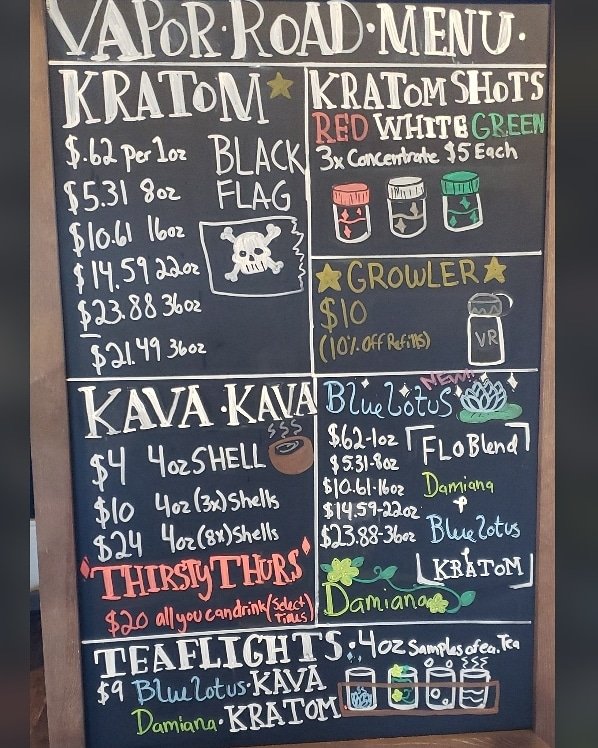 VAPOR·ROAD·MENU·
KRATOM
$.62 per 1oz
$5.31 8oz
$10.61 16oz
$14.59 22oz
$23.88 36oz
$21.49 36oz
BLACK
FLAG
KRATOM SHOTS
RED WHITE GREEN
3x Concentrate $5 Each
GROWLER
$10
(10% Off Refills)
VR
KAVA·KAVA
$4 4oz SHELL
$10 4oz (3x) Shells
$24 4oz (8x) Shells
THIRSTY THURS
$20 all you can drink (Select Times)
NEW!
Blue Lotus
$.62-1oz
$5.31-8oz
$10.61-16oz
$14.59-22oz
$23.88-36oz
FLO Blend
Damiana
+
Blue Lotus
+
KRATOM
Damiana
TEAFLIGHTS: 4oz Samples of ea. Tea
$9 Blue Lotus·KAVA
Damiana·KRATOM